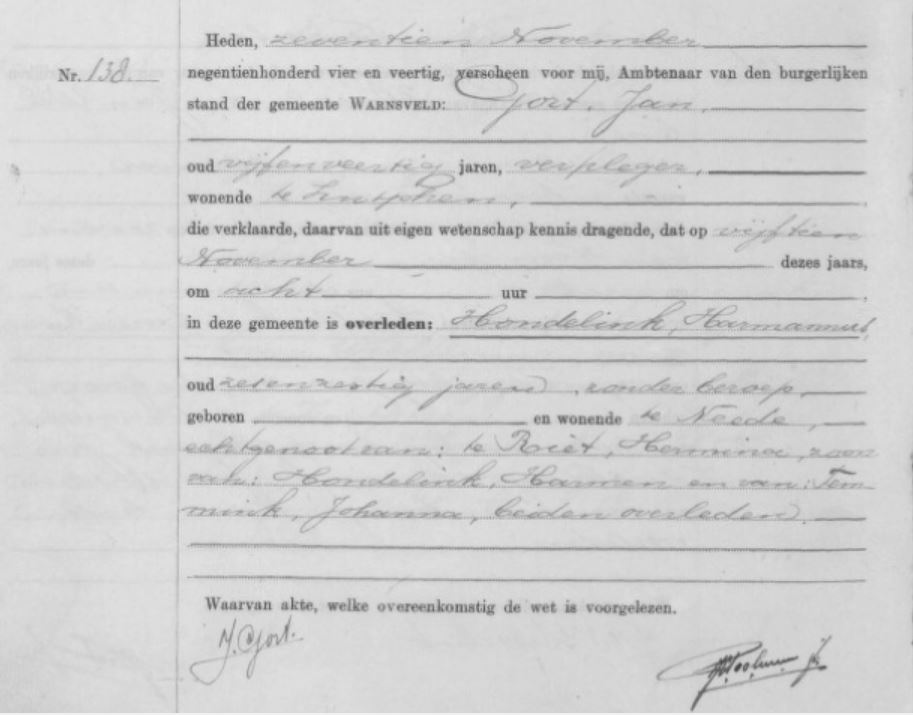 Heden, zeventien November
Nr. 138. negentienhonderd vier en veertig, verscheen voor mij, Ambtenaar van den burgerlijken
stand der gemeente WARNSVELD: Gort, Jan,
oud vijfenveertig jaren, verpleger,
wonende te Zutphen,
die verklaarde, daarvan uit eigen wetenschap kennis dragende, dat op vijftien
November dezes jaars,
om acht uur ,
in deze gemeente is overleden: Hondelink, Harmannus,
oud zesenzestig jaren, zonder beroep,
geboren en wonende te Neede,
echtgenoot van: te Riet, Hermina, zoon
van: Hondelink, Harmen en van: Tem-
mink, Johanna, beiden overleden.
Waarvan akte, welke overeenkomstig de wet is voorgelezen.
J. Gort.